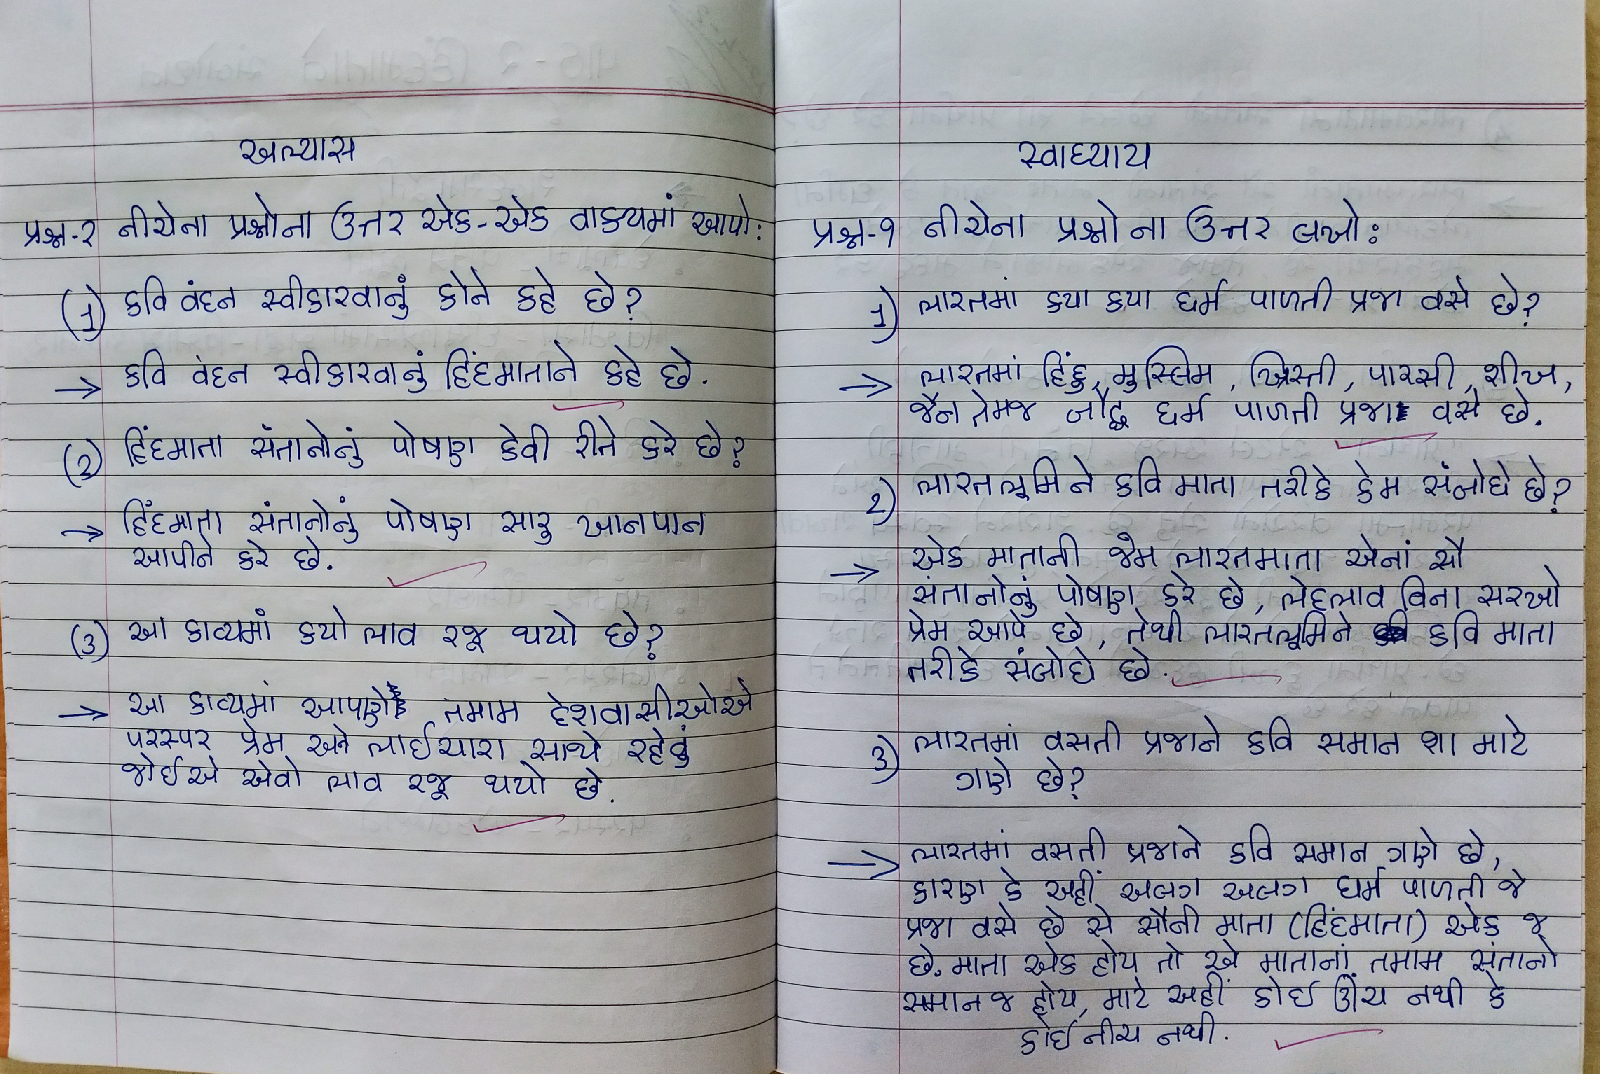 અભ્યાસ
પ્રશ્ન-૨ નીચેના પ્રશ્નોના ઉત્તર એક-એક વાક્યમાં આપો:
(1) કવિ વંદન સ્વીકારવાનું કોને કહે છે?
→ કવિ વંદન સ્વીકારવાનું હિંદમાતાને કહે છે.
(2) હિંદમાતા સંતાનોનું પોષણ કેવી રીતે કરે છે?
→ હિંદમાતા સંતાનોનું પોષણ સારુ ખાનપાન
આપીને કરે છે.
(3) આ કાવ્યમાં કયો ભાવ રજૂ થયો છે?
→ આ કાવ્યમાં આપણે તમામ દેશવાસીઓએ
પરસ્પર પ્રેમ અને ભાઈચારા સાથે રહેવું
જોઈએ એવો ભાવ રજૂ થયો છે.
સ્વાધ્યાય
પ્રશ્ન-૧ નીચેના પ્રશ્નોના ઉત્તર લખો:
1) ભારતમાં કયા કયા ધર્મ પાળતી પ્રજા વસે છે?
→ ભારતમાં હિંદુ, મુસ્લિમ, ખ્રિસ્તી, પારસી, શીખ,
જૈન તેમજ બૌદ્ધ ધર્મ પાળતી પ્રજા વસે છે.
2) ભારતભૂમિને કવિ માતા તરીકે કેમ સંબોધે છે?
→ એક માતાની જેમ ભારતમાતા એનાં સૌ
સંતાનોનું પોષણ કરે છે, ભેદભાવ વિના સરખો
પ્રેમ આપે છે, તેથી ભારતભૂમિને કવિ માતા
તરીકે સંબોધે છે.
3) ભારતમાં વસતી પ્રજાને કવિ સમાન શા માટે
ગણે છે?
→ ભારતમાં વસતી પ્રજાને કવિ સમાન ગણે છે,
કારણ કે અહીં અલગ અલગ ધર્મ પાળતી જે
પ્રજા વસે છે સે સૌની માતા (હિંદમાતા) એક જ
છે. માતા એક હોય તો એ માતાનાં તમામ સંતાનો
સમાન જ હોય, માટે અહીં કોઈ ઊંચ નથી કે
કોઈ નીચ નથી.